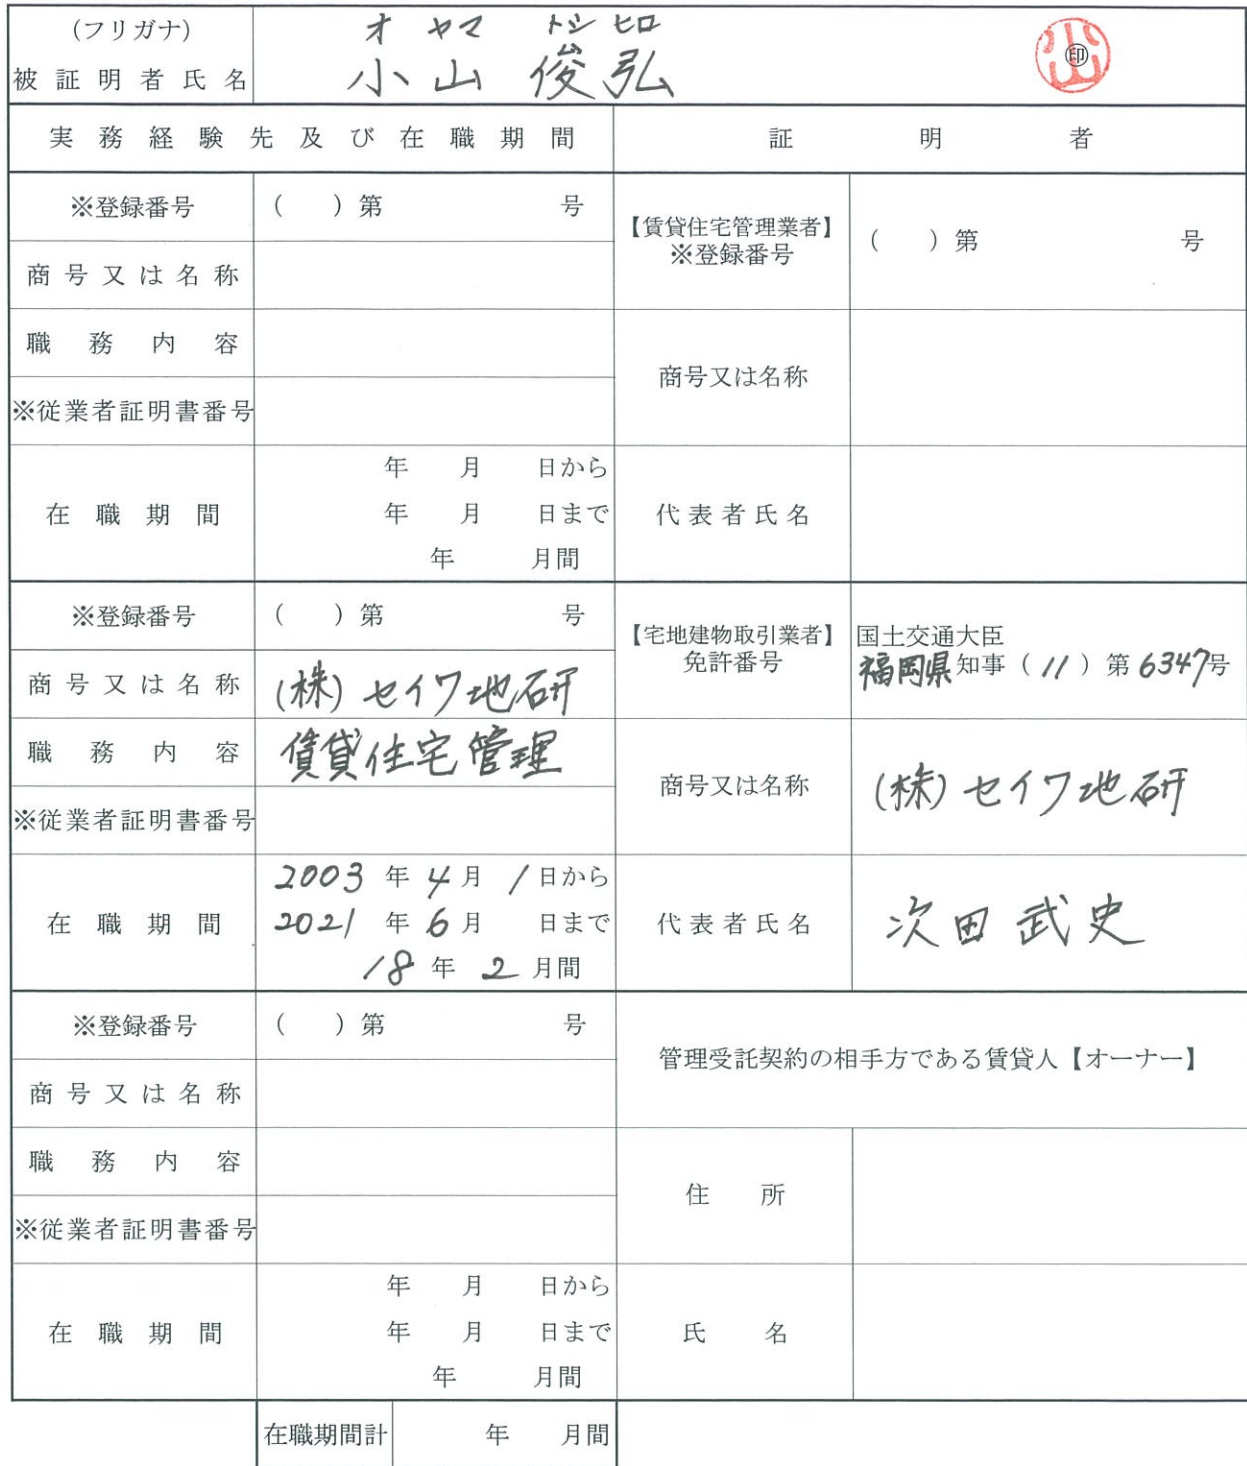 (フリガナ) オ ヤマ トシ ヒロ
被証明者氏名 小山 俊弘 ㊞
実務経験先及び在職期間 証明者
※登録番号 ( )第 号
【賃貸住宅管理業者】
※登録番号 ( )第 号
商号又は名称
職務内容
※従業者証明書番号
商号又は名称
在職期間
年 月 日から
年 月 日まで
年 月間
代表者氏名
※登録番号 ( )第 号
【宅地建物取引業者】
免許番号
国土交通大臣
福岡県知事(11)第6347号
商号又は名称 (株)セイワ地研
職務内容 賃貸住宅管理
※従業者証明書番号
商号又は名称 (株)セイワ地研
在職期間
2003年4月1日から
2021年6月 日まで
18年2月間
代表者氏名 次田武史
※登録番号 ( )第 号
管理受託契約の相手方である賃貸人【オーナー】
商号又は名称
職務内容
※従業者証明書番号
住所
在職期間
年 月 日から
年 月 日まで
年 月間
氏名
在職期間計 年 月間